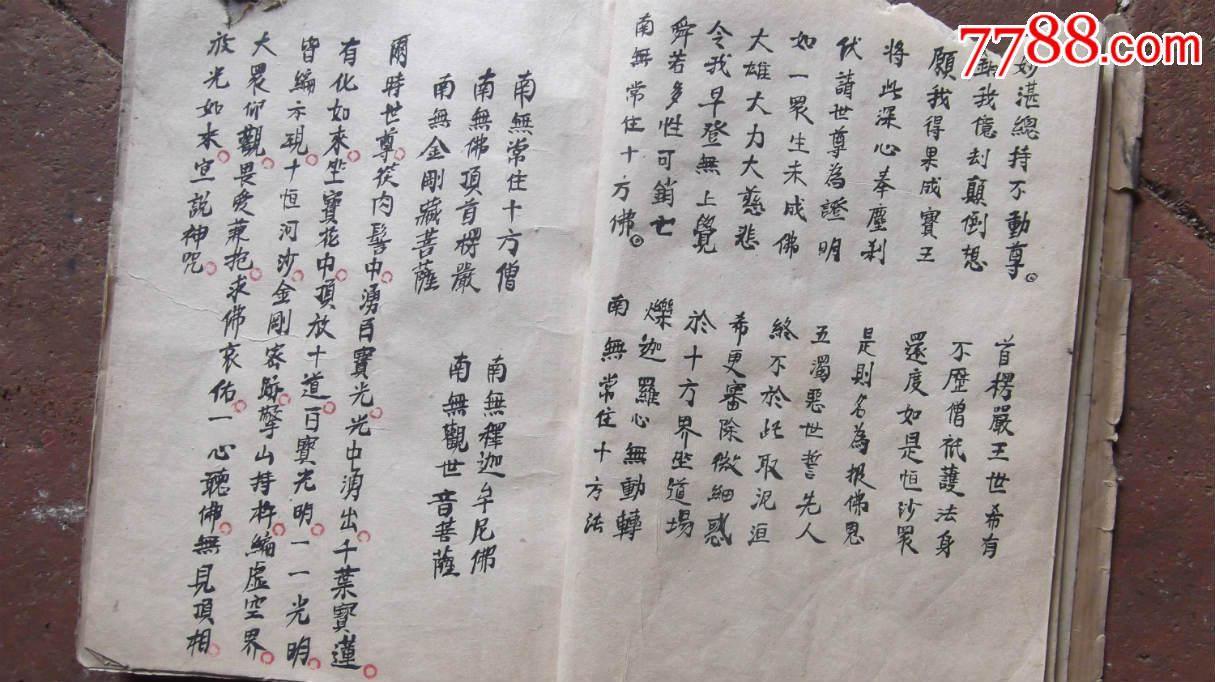 7788.com
妙湛總持不動尊。 首楞嚴王世希有
銷我億刦顛倒想 不歷僧祇護法身
願我得果成寶王 還度如是恒沙眾
將此深心奉塵刹 是則名為报佛恩
伏請世尊為證明 五濁惡世誓先人
如一眾生未成佛 終不於此取泥洹
大雄大力大慈悲 希更審除微細惑
令我早登無上覺 於十方界坐道場
舜若多性可銷亡 爍迦羅心無動轉
南無常住十方佛。 南無常住十方法
南無常住十方僧 南無釋迦牟尼佛
南無佛頂首楞嚴 南無觀世音菩薩
南無金剛藏菩薩
爾時世尊。從肉髻中。湧百寶光。光中湧出。千葉寶蓮。
有化如來。坐寶花中。頂放十道。百寶光明。一一光明。
皆編示現。十恒河沙。金剛密跡。擎山持杵。編虛空界。
大眾仰觀。畏愛兼抱。求佛哀佑。一心聽佛。無見頂相。
放光如來。宣說神咒。